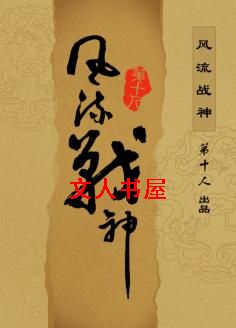 风流战神
第十人
文人书屋
风流战神
第十人 出品